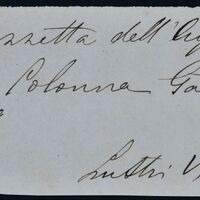 zzetta dell'Aq
Colonna Ga
Luttri V